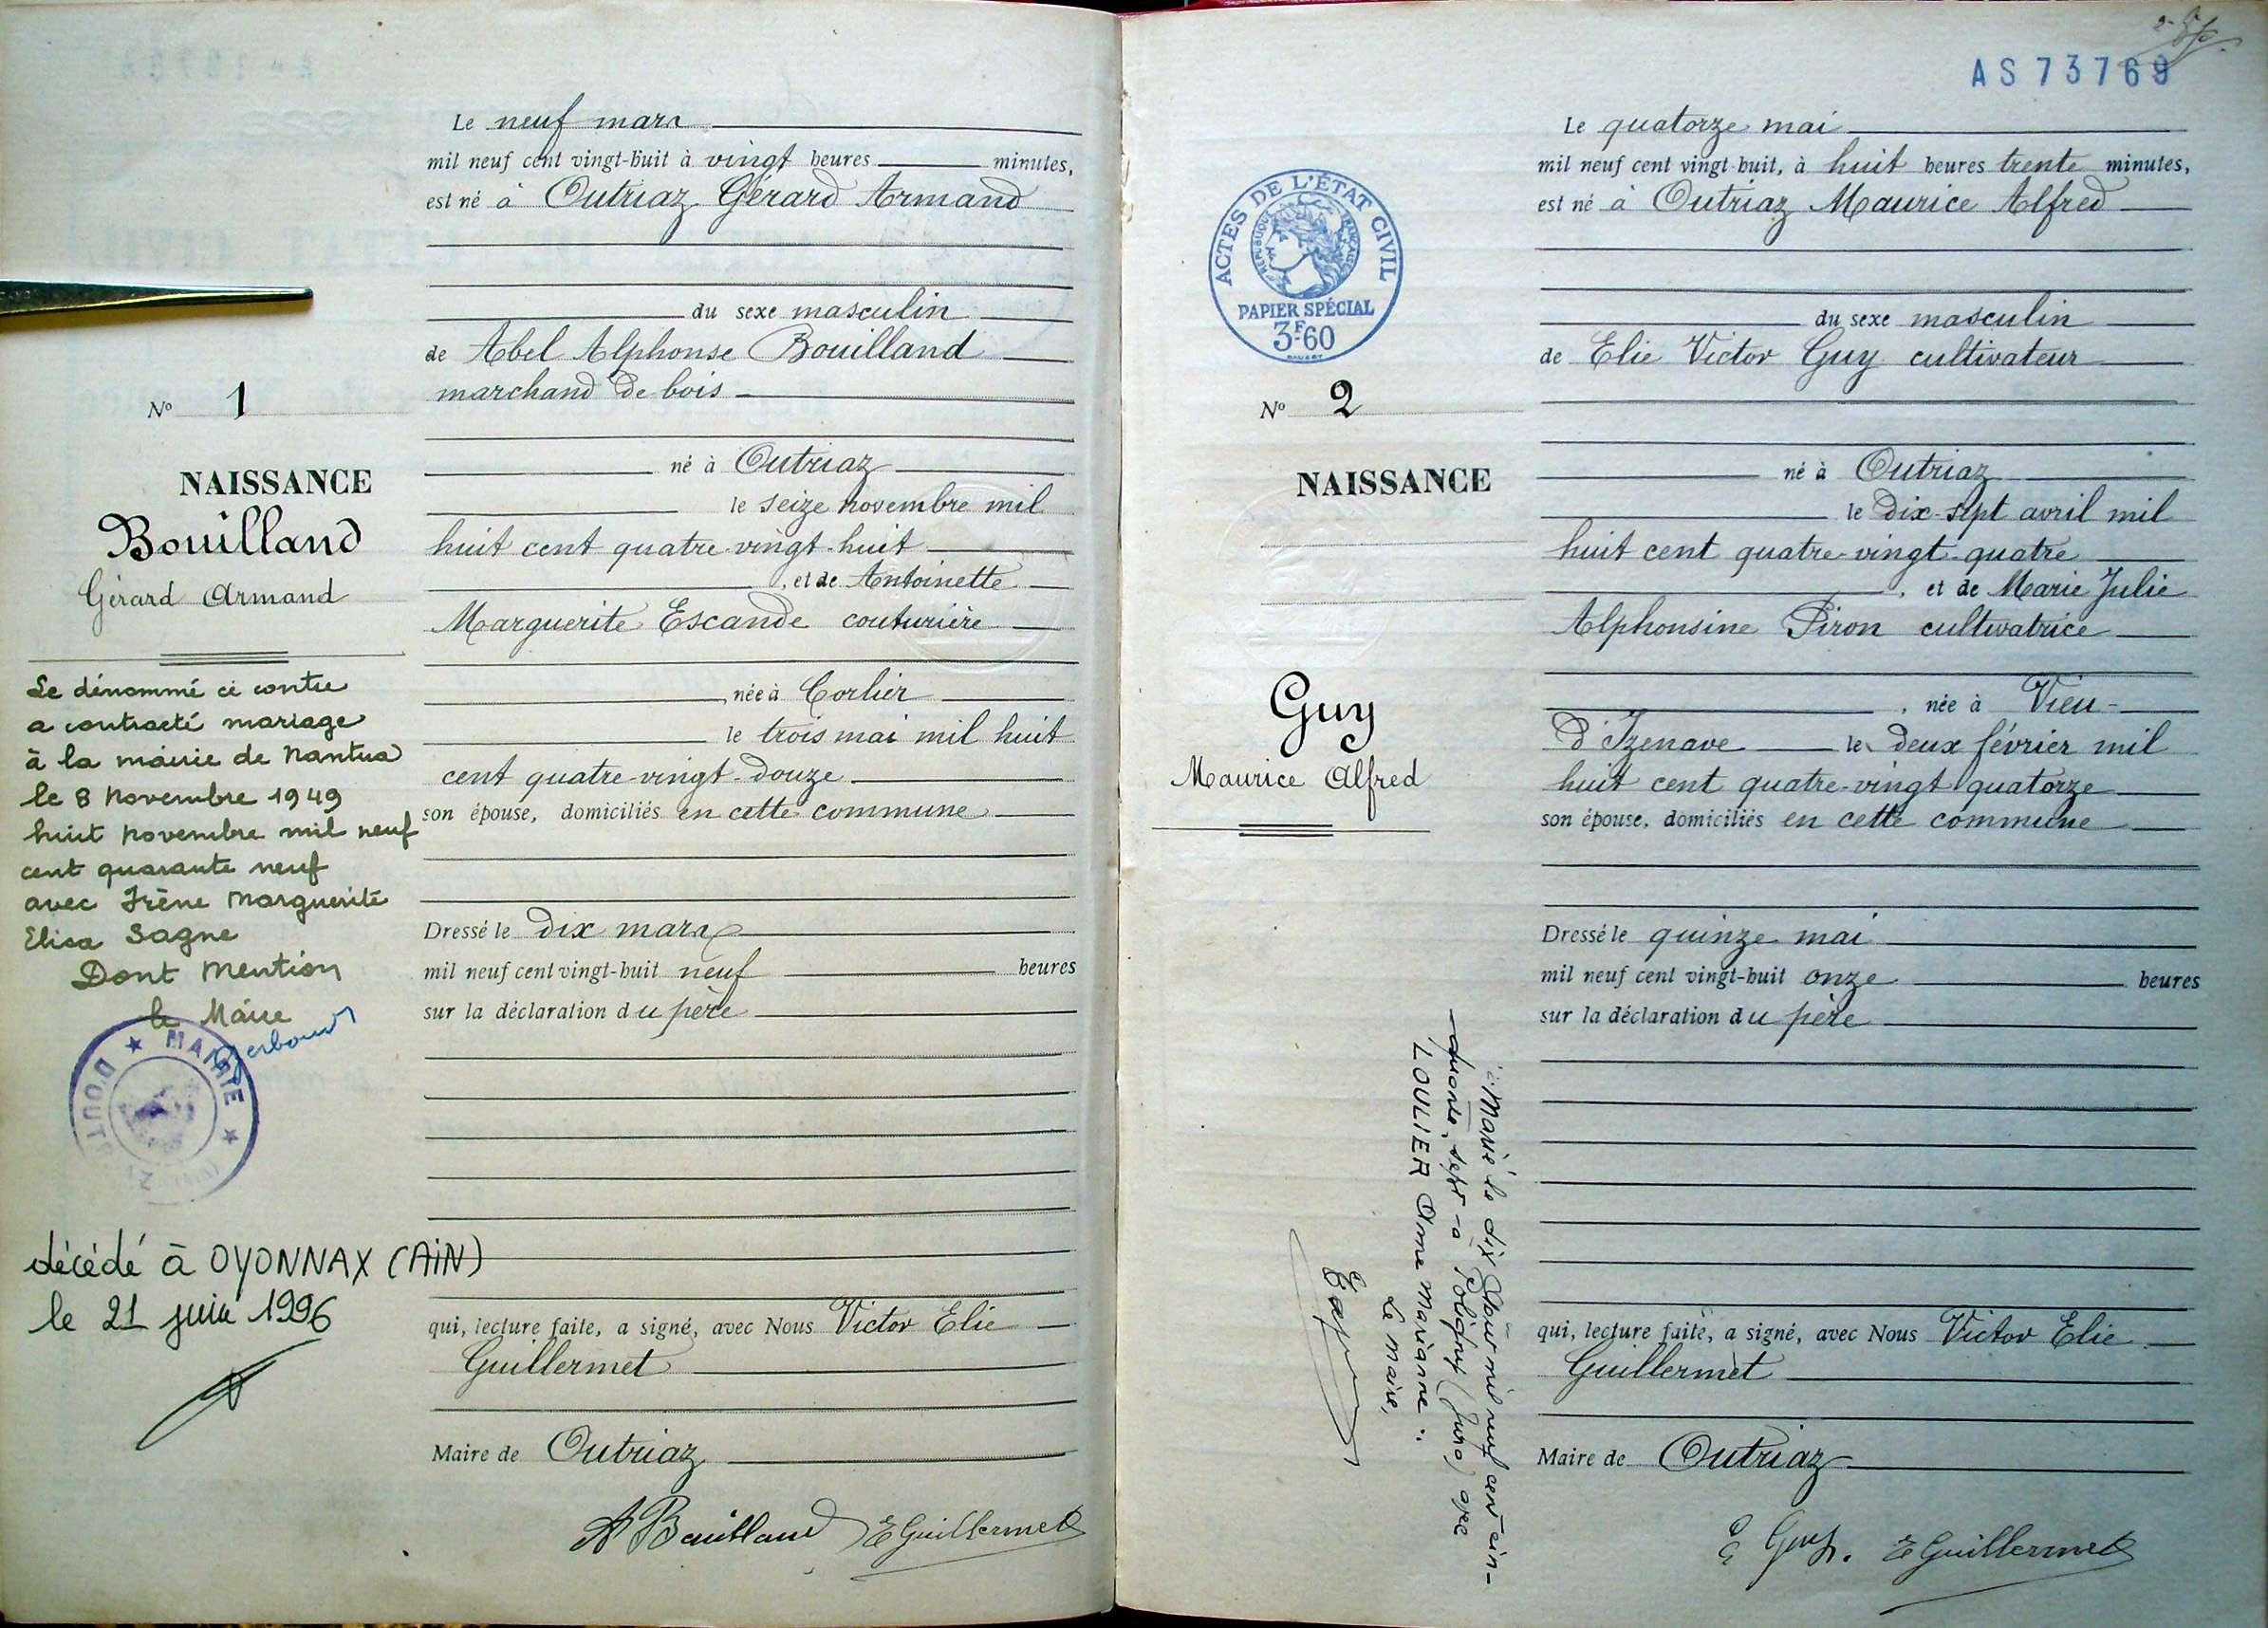 Le neuf mars
mil neuf cent vingt-huit à vingt heures minutes,
est né à Outriaz Gérard Armand
du sexe masculin
de Abel Alphonse Bouilland
marchand de bois
né à Outriaz
le seize novembre mil
huit cent quatre-vingt-huit
, et de Antoinette
Marguerite Escande couturière
, née à Corlier
le trois mai mil huit
cent quatre-vingt-douze
son épouse, domiciliés en cette commune
Dressé le dix mars
mil neuf cent vingt-huit neuf heures
sur la déclaration du père
qui, lecture faite, a signé, avec Nous Victor Elie
Guillermet
Maire de Outriaz
A Bouilland EGuillermet
No 1
NAISSANCE
Bouilland
Gérard Armand
Le dénommé ci contre
a contracté mariage
à la mairie de Nantua
le 8 Novembre 1949
huit Novembre mil neuf
cent quarante neuf
avec Irène Marguerite
Elisa Sagne
Dont Mention
le Maire
MAIRIE
décédé à OYONNAX (AIN)
le 21 juin 1996
AS 73769
Le quatorze mai
mil neuf cent vingt-huit, à huit heures trente minutes,
est né à Outriaz Maurice Alfred
du sexe masculin
de Elie Victor Guy cultivateur
né à Outriaz
le dix-sept avril mil
huit cent quatre-vingt-quatre
, et de Marie Julie
Alphonsine Piron cultivatrice
, née à Vieu-
d'Izenave le deux février mil
huit cent quatre-vingt quatorze
son épouse, domiciliés en cette commune
Dressé le quinze mai
mil neuf cent vingt-huit onze heures
sur la déclaration du père
qui, lecture faite, a signé, avec Nous Victor Elie
Guillermet
Maire de Outriaz
E Guy. EGuillermet
ACTES DE L'ÉTAT CIVIL
RÉPUBLIQUE FRANÇAISE
PAPIER SPÉCIAL
3F60
No 2
NAISSANCE
Guy
Maurice Alfred
Marié le dix mil neuf cent cin-
quante, sept à Poligny (Jura) avec
LOULIER Anne Marianne
Le maire,